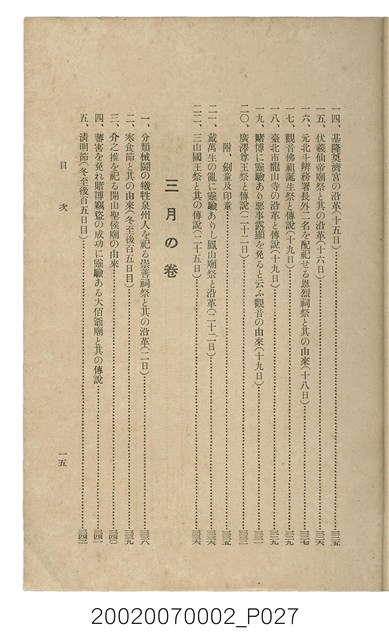 一四、基隆奠濟宮の沿革(十五日)
一五、伏羲仙帝廟祭と其の沿革(十六日)
一六、元北斗辨務署長外二名を配祀せる恩烈祠祭と其の由來(十八日)
一七、觀音佛祖誕生祭と傳說(十九日)
一八、臺北市龍山寺の沿革と傳說(十九日)
一九、賭博に靈驗あり惡事露顯を免ると云ふ觀音の由來(十九日)
二〇、廣澤尊王祭と傳說(二十二日)
附、劍童及印童
二一、戴萬生の亂に靈驗ありし鳳山廟祭と沿革(二十二日)
二二、三山國王祭と其の傳說(二十五日)
三月の卷
一、分類械鬪の犧牲泉州人を祀る崇善祠祭と其の沿革(二日)
二、寒食節と其の由來(冬至後百五日目)
三、介之推を祀る開山聖侯廟の由來
四、蕃害を免れ賭博竊盜の成功に靈驗ある大伯爺廟と其の傳說
五、清明節(冬至後百五日目)
目次
一五
20020070002_P027